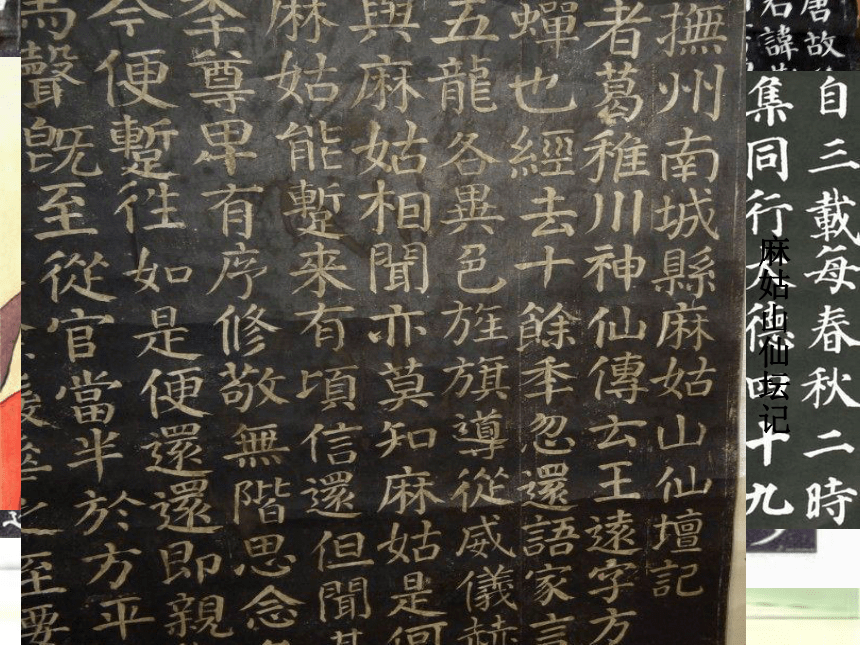 唐故
諱
自三載每春秋二時
集同行大德四十九
麻姑山仙坛记
撫州南城縣麻姑山仙壇記
者葛稚川神仙傳云王遠字方
蟬也經去十餘秊忽還語家言
五龍各異色旌旗導從威儀赫
與麻姑相聞亦莫知麻姑是何
麻姑能蹔來有頃信還但聞其
秊尊卑有序修敬無階思念
今便蹔往如是便還還即親
馬聲旣至從官當半於方平
之至要